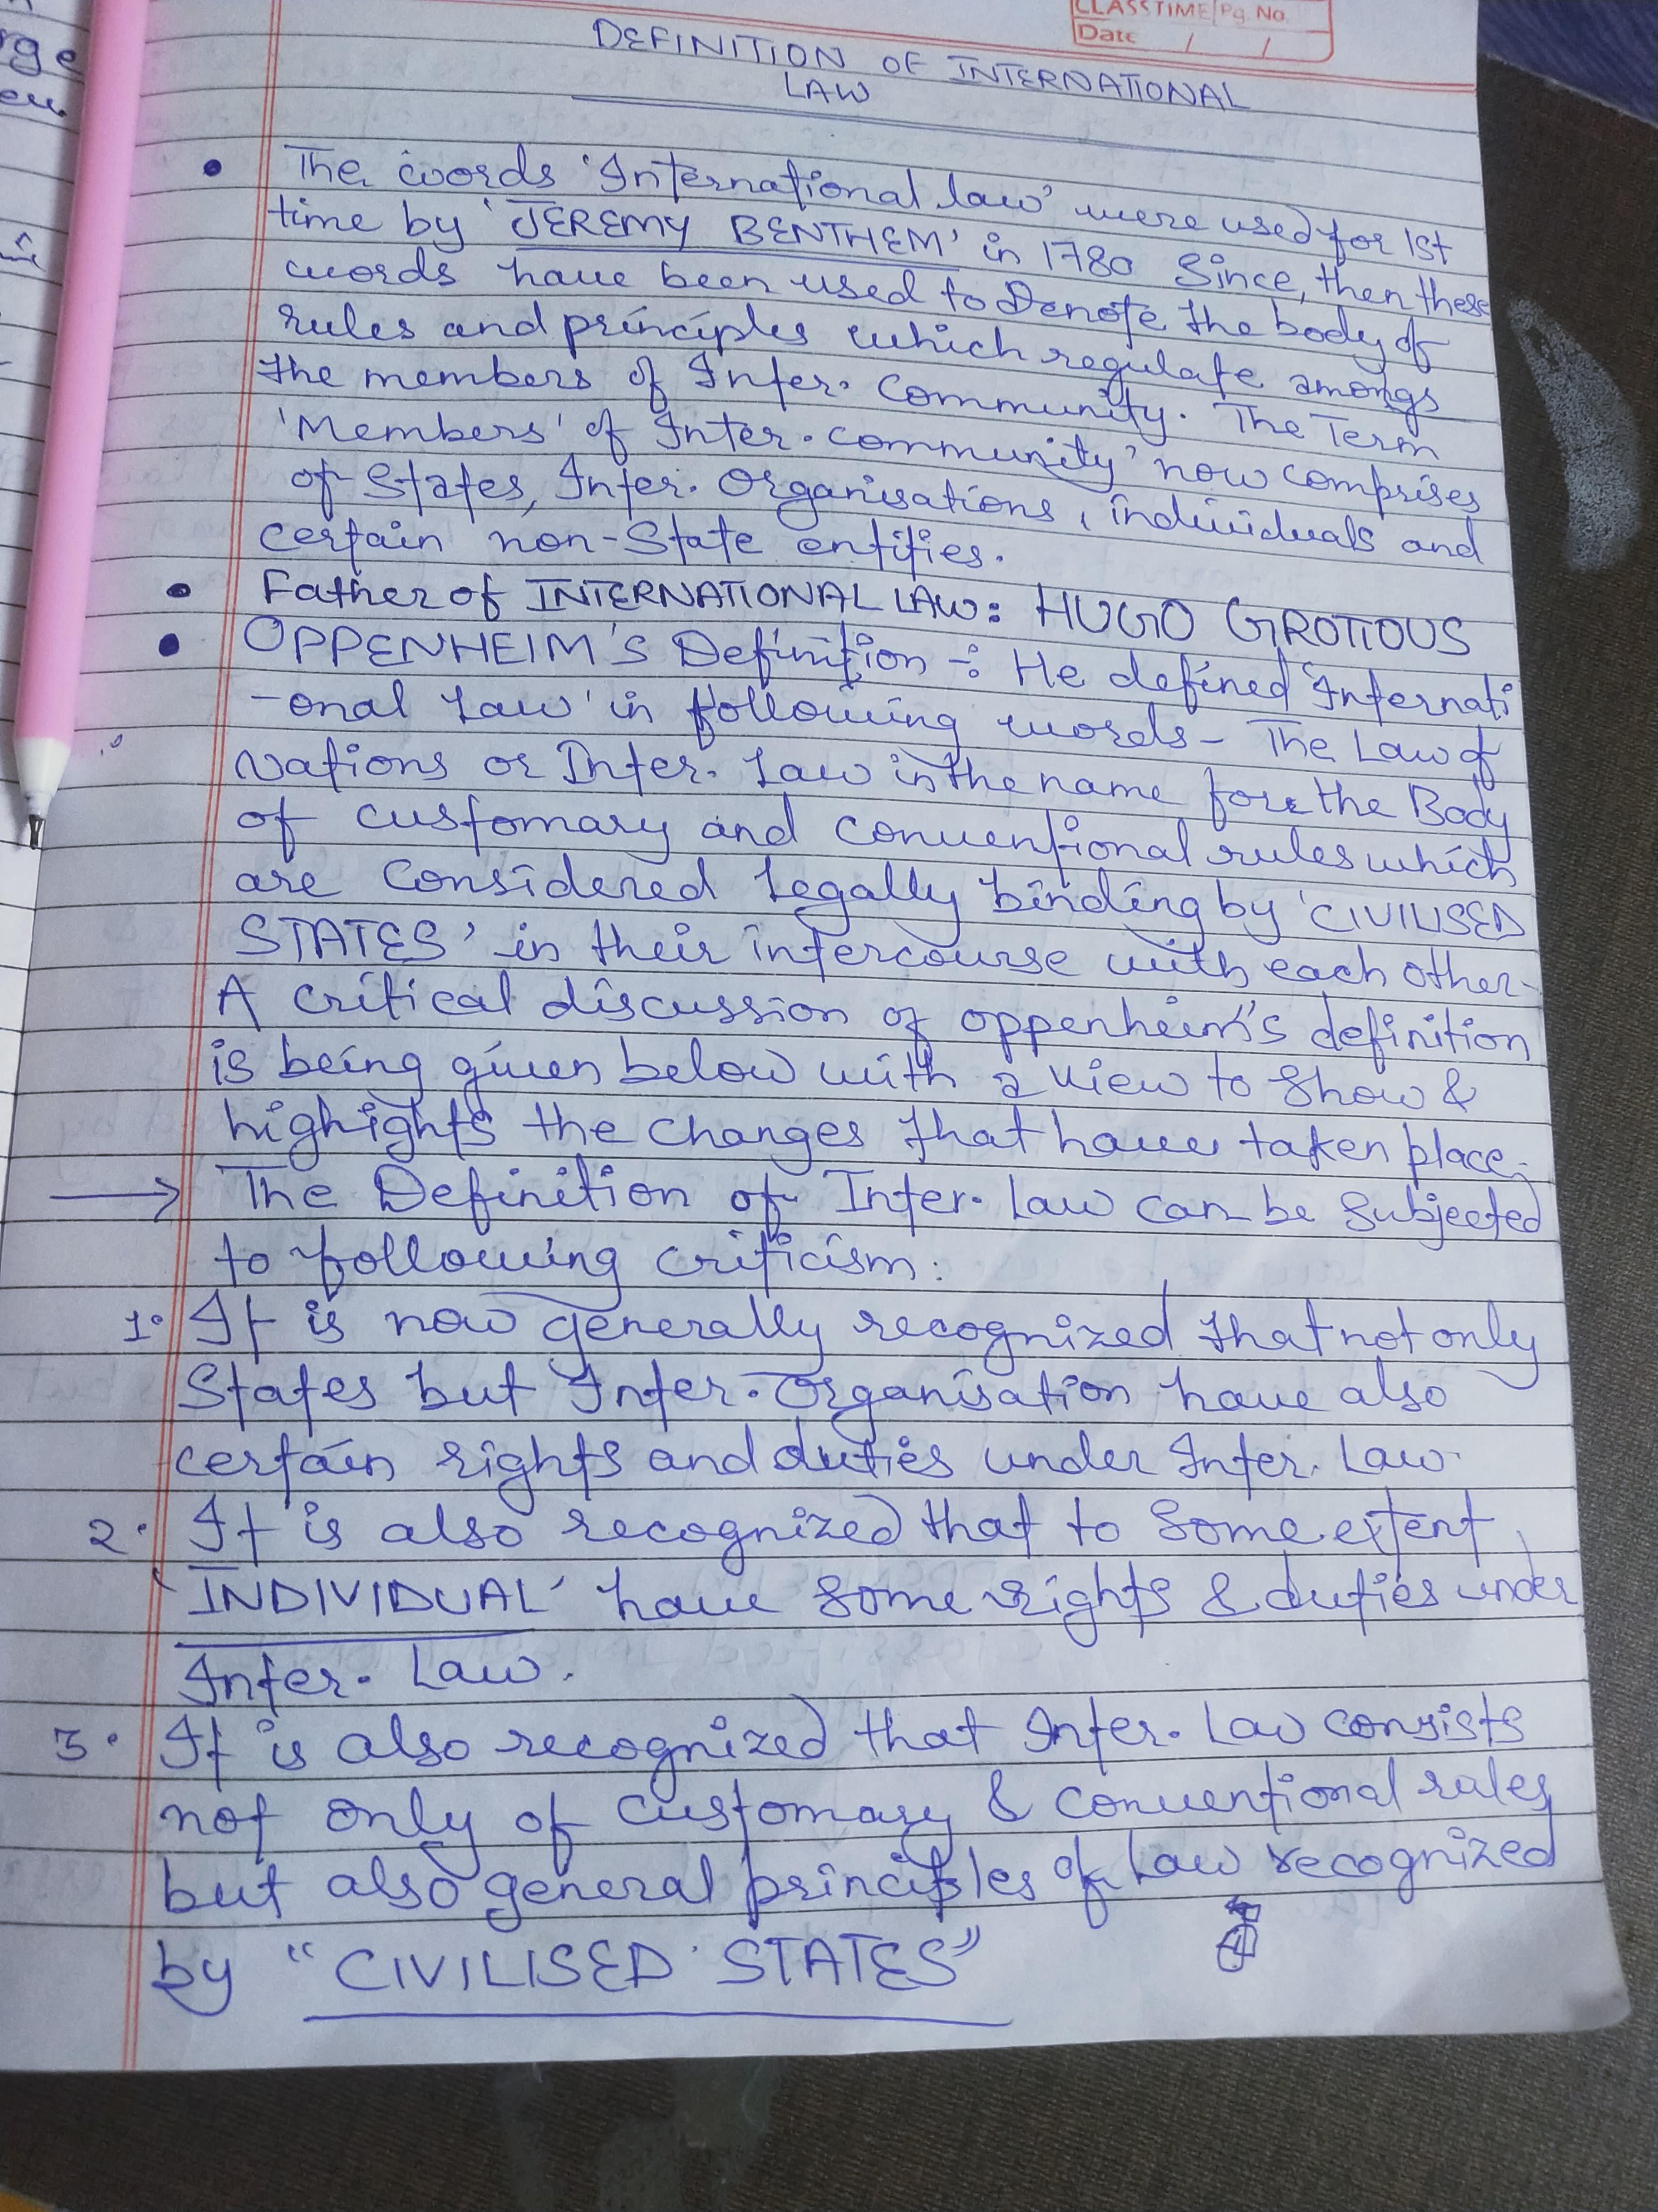 rge
CLASSTIME Pg. No.
Date / /
DEFINITION OF INTERNATIONAL
LAW
• The words 'International law' were used for 1st
time by 'JEREMY BENTHEM' in 1780 Since, then these
words have been used to Denote the body of
rules and principles which regulate amongs
the members of Inter. Community. The Term
'Members' of Inter. community' now comprises
of States, Inter. Organisations, individuals and
certain non-State entities.
• Father of INTERNATIONAL LAW: HUGO GROTIOUS
• OPPENHEIM'S Definition -: He defined 'Internati
-onal Law' in following words - The Law of
Nations or Inter. Law in the name for the Body
of customary and conventional rules which
are Considered Legally binding by 'CIVILISED
STATES' in their intercourse with each other-
A critical discussion of oppenheim's definition
is being given below with a view to Show &
highights the changes that have taken place.
→ The Definition of Inter. Law can be Subjected
to following criticism:
1. It is now generally recognized that not only
States but Inter. Organisation have also
certain rights and duties under Inter. Law.
2. It is also recognized that to Some extent,
'INDIVIDUAL' have some rights & duties under
Inter. Law.
3. It is also recognized that Inter. Law consists
not only of customary & conventional rules
but also general principles of Law recognized
by "CIVILISED STATES"